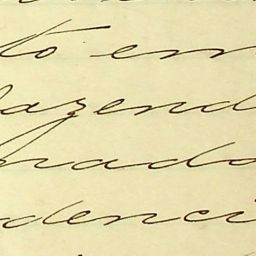 to em
azend
rado
denci